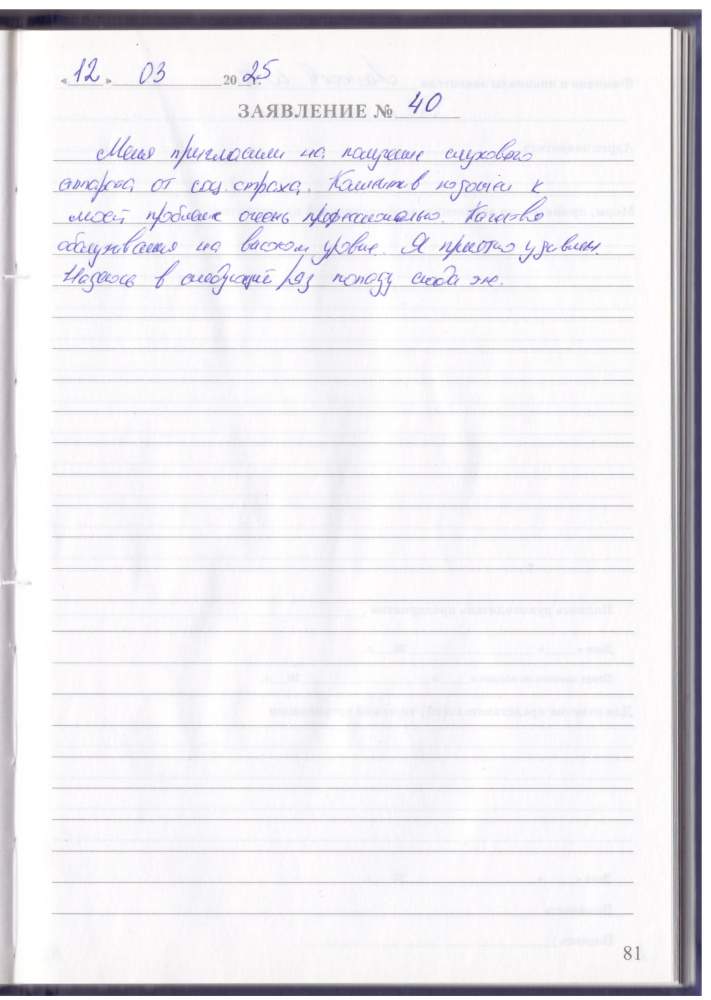 «12» 03 2025 г.
ЗАЯВЛЕНИЕ № 40
Меня пригласили на получение слухового
аппарата от соц. страха. Коллектив подошел к
моей проблеме очень профессионально. Качество
обслуживания на высоком уровне. Я приятно удивлен.
Надеюсь в следующий раз попаду сюда же.
81